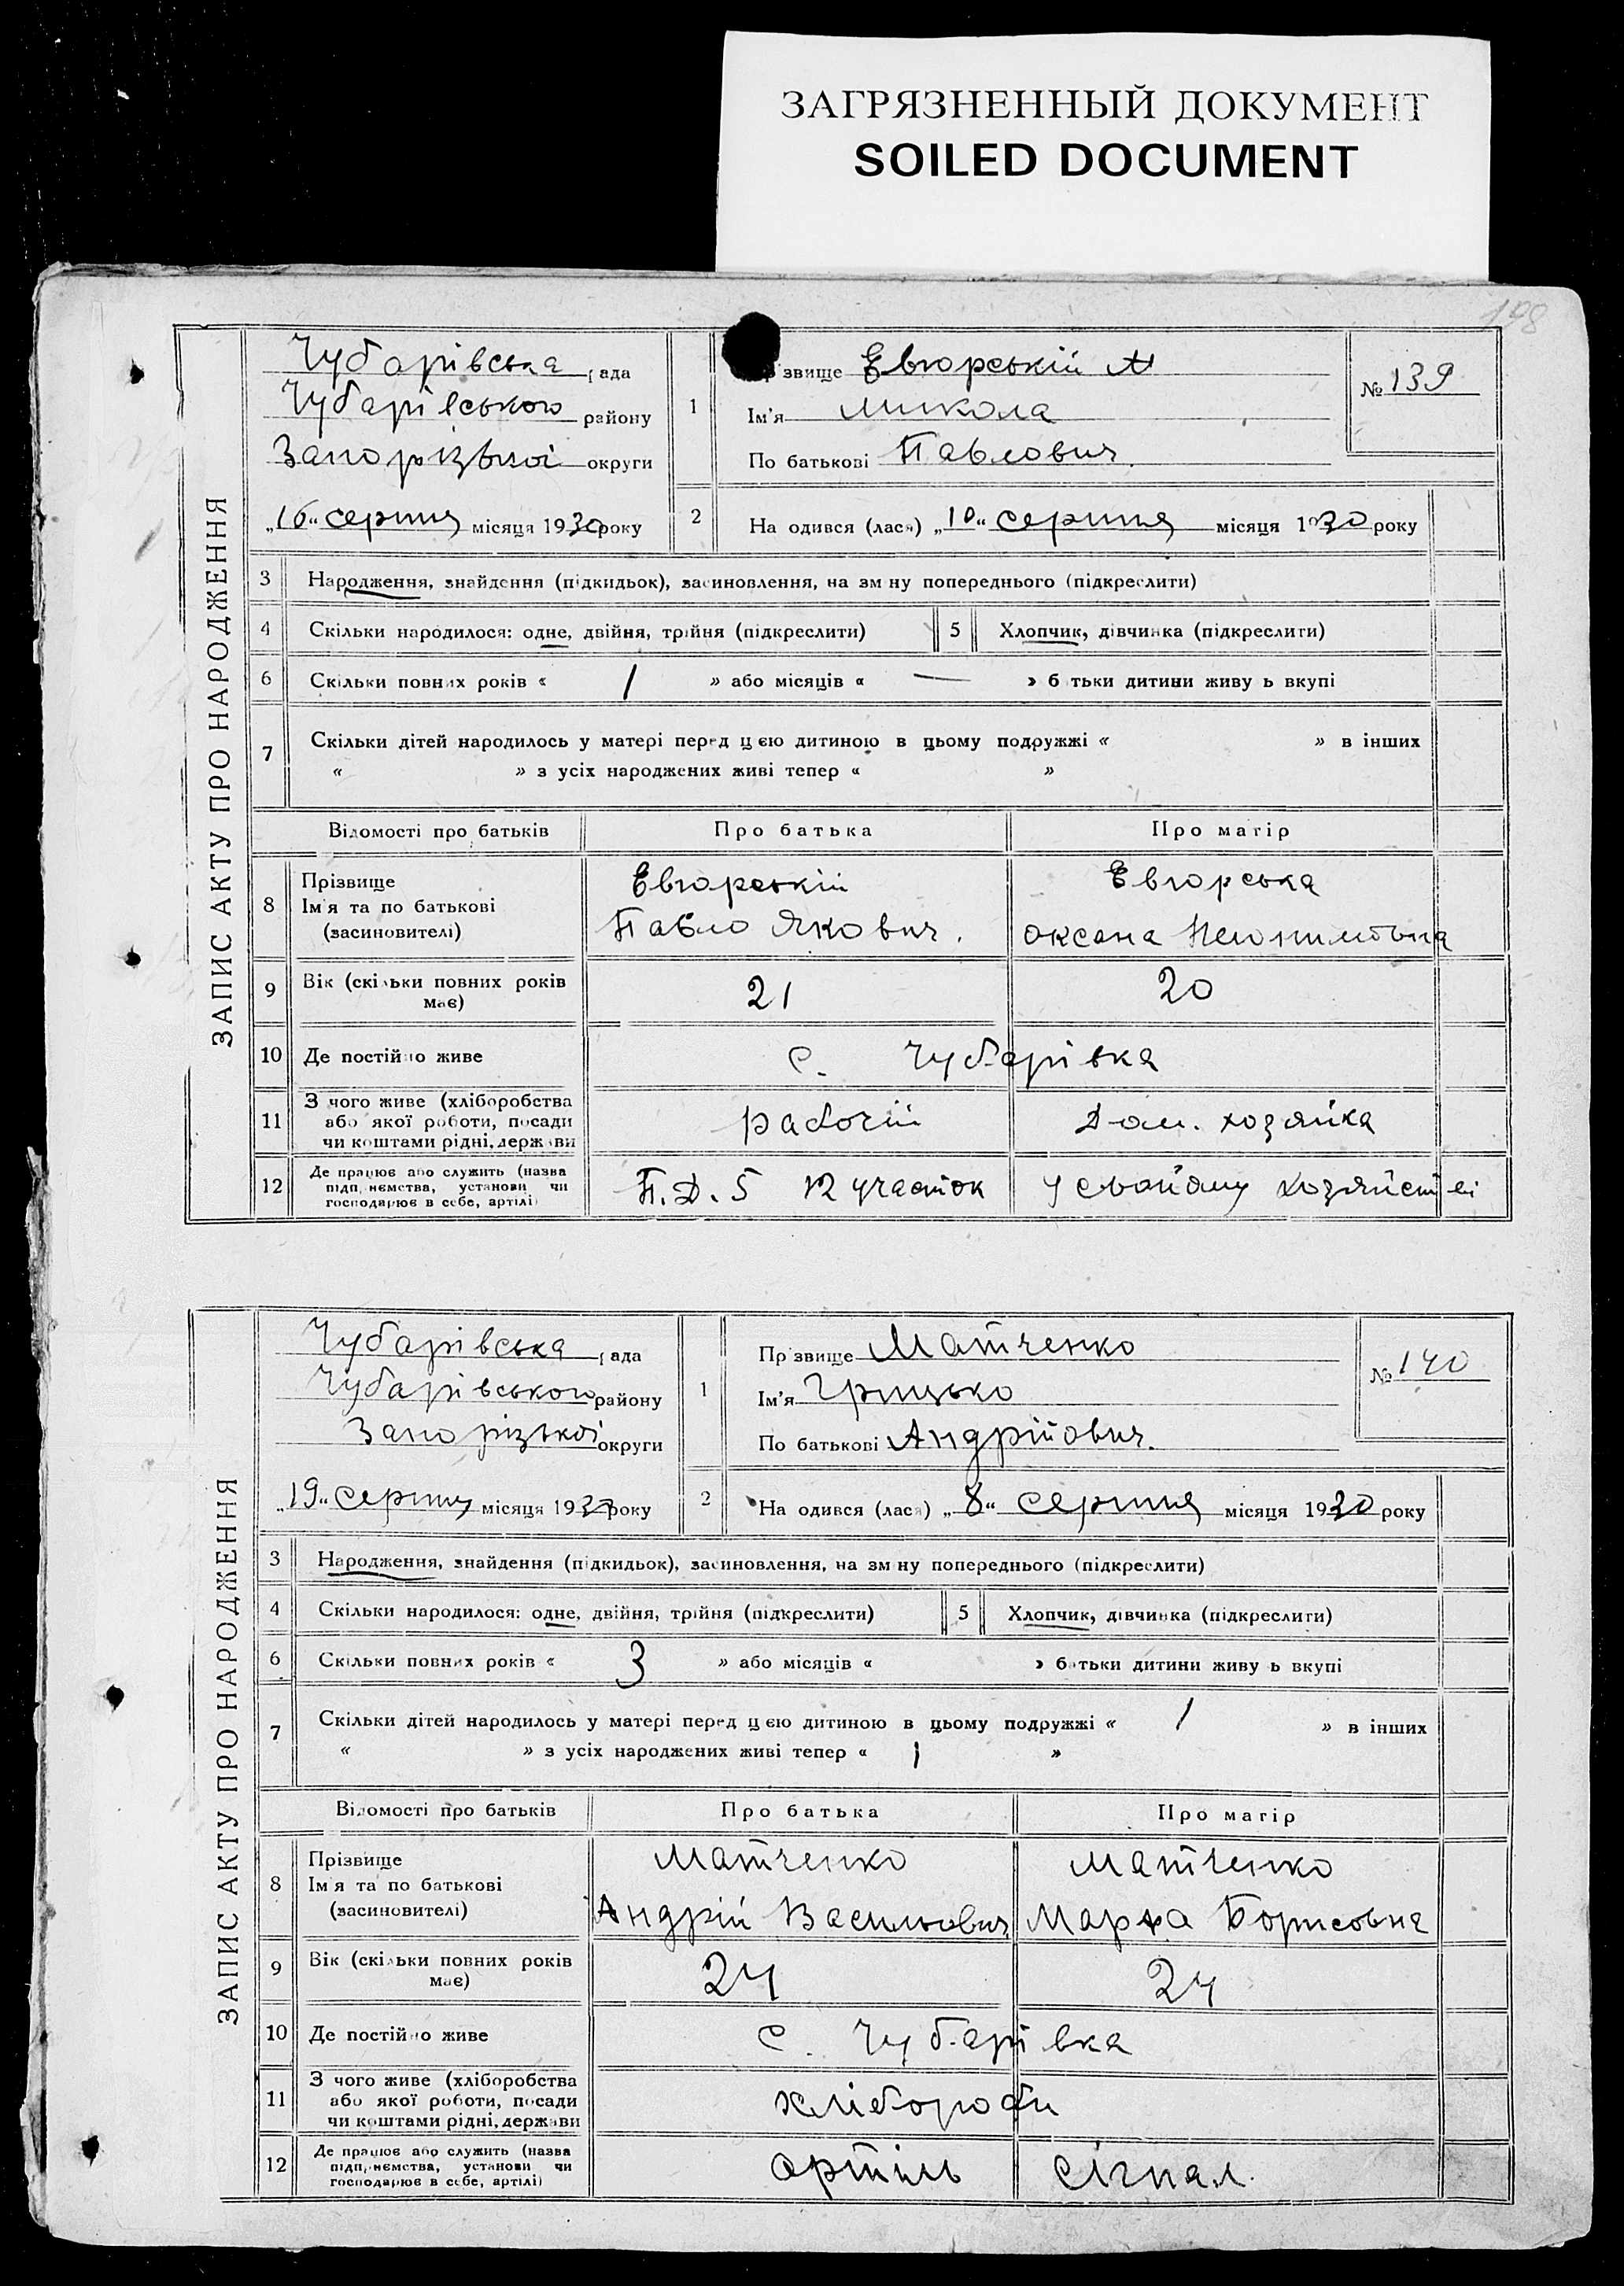 ЗАГРЯЗНЕННЫЙ ДОКУМЕНТ
SOILED DOCUMENT
198
ЗАПИС АКТУ ПРО НАРОДЖЕННЯ
Чубарівська рада
Чубарівського району
Запорізької округи
„16“ серпня місяця 1930 року
1
Прізвище Евгорській М
Ім'я Микола
По батькові Павлович.
№ 139
2 На одився (лася) „10“ серпня місяця 1930 року
3 Народження, знайдення (підкидьок), засиновлення, на зміну попереднього (підкреслити)
4 Скільки народилося: одне, двійня, трійня (підкреслити) 5 Хлопчик, дівчинка (підкреслити)
6 Скільки повних років « 1 » або місяців « — » батьки дитини живуть вкупі
7 Скільки дітей народилось у матері перед цією дитиною в цьому подружжі « » в інших
« » з усіх народжених живі тепер « »
Відомості про батьків Про батька Про матір
8 Прізвище Ім'я та по батькові (засиновителі)
Евгорській Евгорська
Павло Якович. Оксана
9 Вік (скільки повних років має) 21 20
10 Де постійно живе с. Чубарівка
11 З чого живе (хліборобства або якої роботи, посади чи коштами рідні, держави рабочій Дом. хозяйка
12 Де працює або служить (назва підприємства, установи чи господарює в себе, артілі) П.Д. 5 12 участок у свойому хозяйстві
ЗАПИС АКТУ ПРО НАРОДЖЕННЯ
Чубарівська рада
Чубарівського району
Запорізької округи
„19“ серпня місяця 1930 року
1
Прізвище Матченко
Ім'я Грицько
По батькові Андрійович.
№ 140
2 На одився (лася) „8“ серпня місяця 1930 року
3 Народження, знайдення (підкидьок), засиновлення, на зміну попереднього (підкреслити)
4 Скільки народилося: одне, двійня, трійня (підкреслити) 5 Хлопчик, дівчинка (підкреслити)
6 Скільки повних років « 3 » або місяців « » батьки дитини живуть вкупі
7 Скільки дітей народилось у матері перед цією дитиною в цьому подружжі « 1 » в інших
« » з усіх народжених живі тепер « 1 »
Відомості про батьків Про батька Про матір
8 Прізвище Ім'я та по батькові (засиновителі)
Матченко Матченко
Андрій Васильович Марфа Борисовна
9 Вік (скільки повних років має) 24 24
10 Де постійно живе с. Чубарівка
11 З чого живе (хліборобства або якої роботи, посади чи коштами рідні, держави хлібороби
12 Де працює або служить (назва підприємства, установи чи господарює в себе, артілі) артіль сігнал.